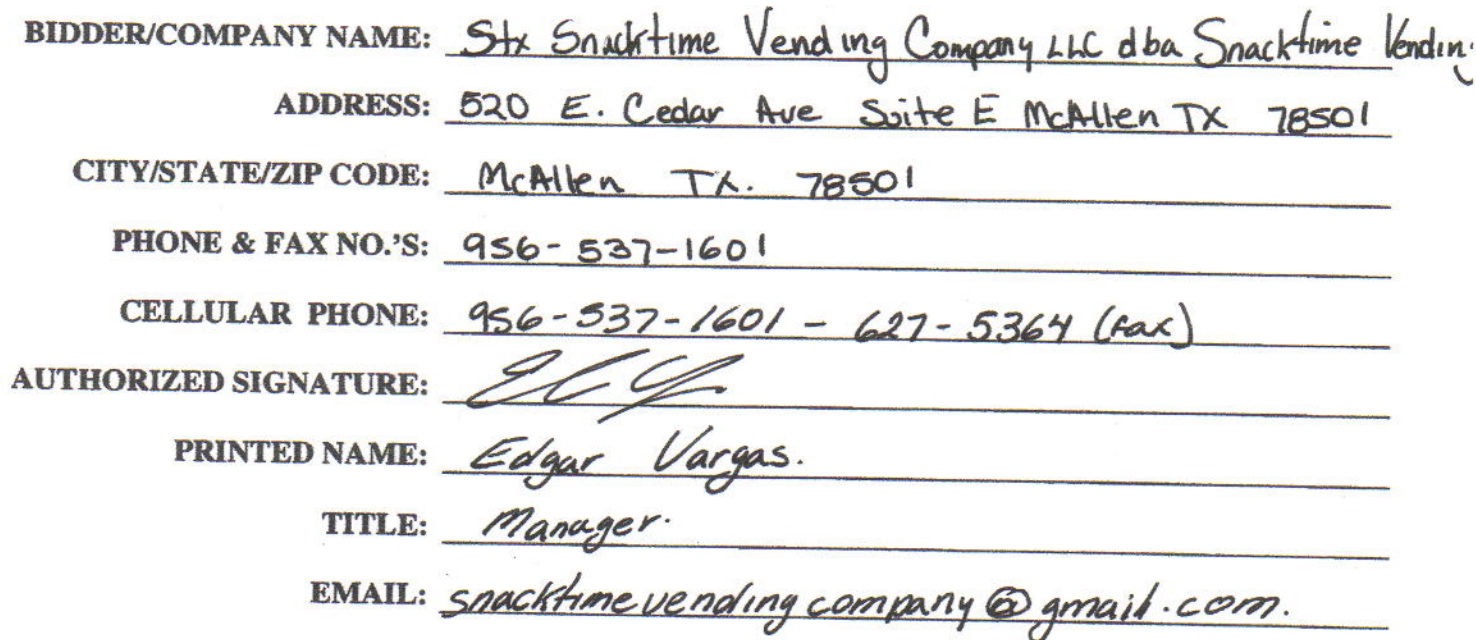 BIDDER/COMPANY NAME: Stx Snacktime Vending Company LLC dba Snacktime Vending
ADDRESS: 520 E. Cedar Ave Suite E McAllen TX 78501
CITY/STATE/ZIP CODE: McAllen TX. 78501
PHONE & FAX NO.'S: 956-537-1601
CELLULAR PHONE: 956-537-1601 - 627-5364 (Fax)
AUTHORIZED SIGNATURE:
PRINTED NAME: Edgar Vargas.
TITLE: Manager.
EMAIL: snacktimevendingcompany@gmail.com.